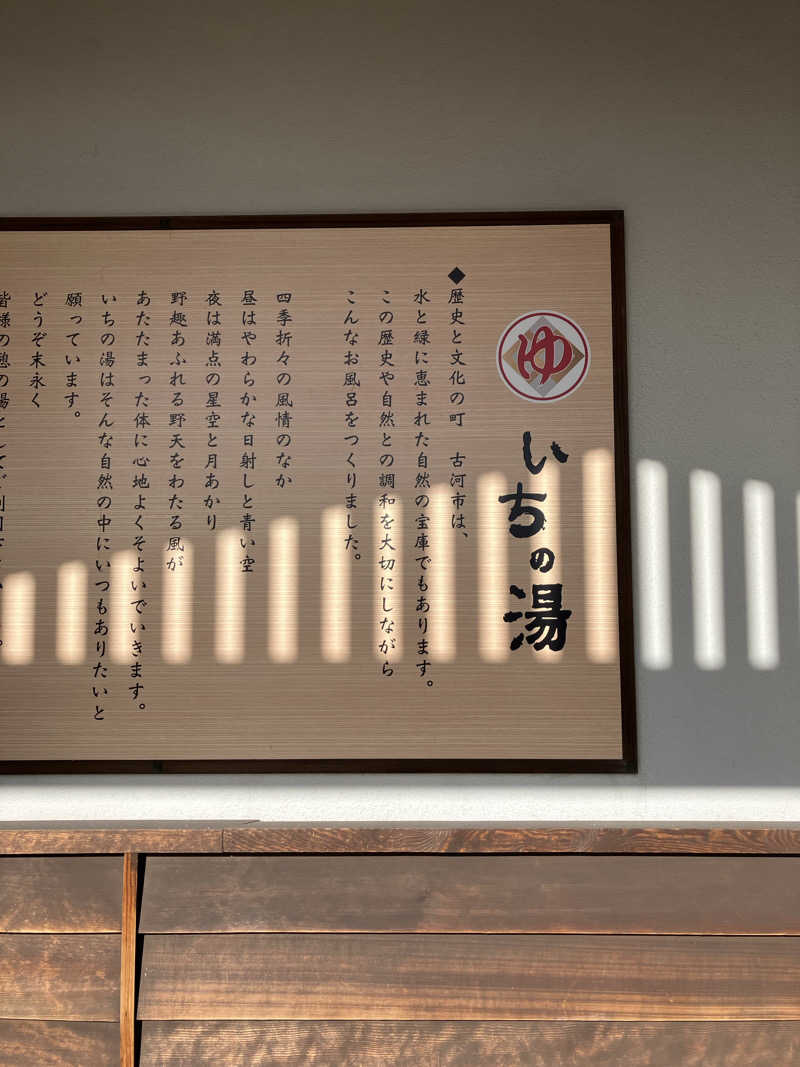 ゆ
いちの湯
◆歴史と文化の町 古河市は、
水と緑に恵まれた自然の宝庫でもあります。
この歴史や自然との調和を大切にしながら
こんなお風呂をつくりました。
四季折々の風情のなか
昼はやわらかな日射しと青い空
夜は満点の星空と月あかり
野趣あふれる野天をわたる風が
あたたまった体に心地よくそよいでいきます。
いちの湯はそんな自然の中にいつもありたいと
願っています。
どうぞ末永く